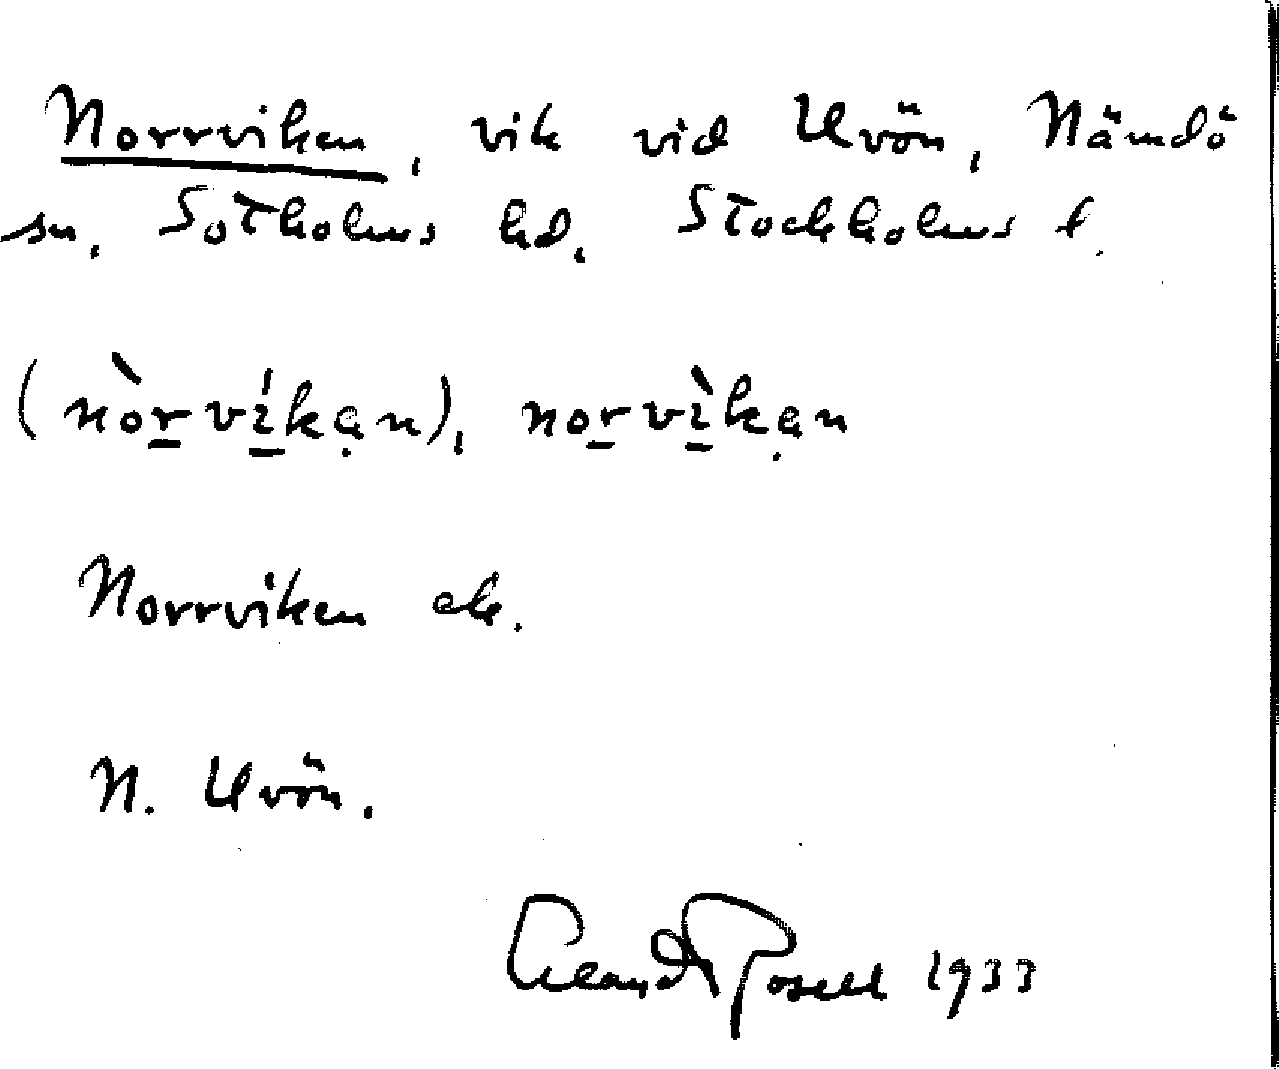 Norrviken, vik vid Uvön, Nämdö
sn, Sotholms hd, Stockholms l.
(nòrvíkạn), norvìkạn
Norrviken ek.
N. Uvön.
Rosell 1933